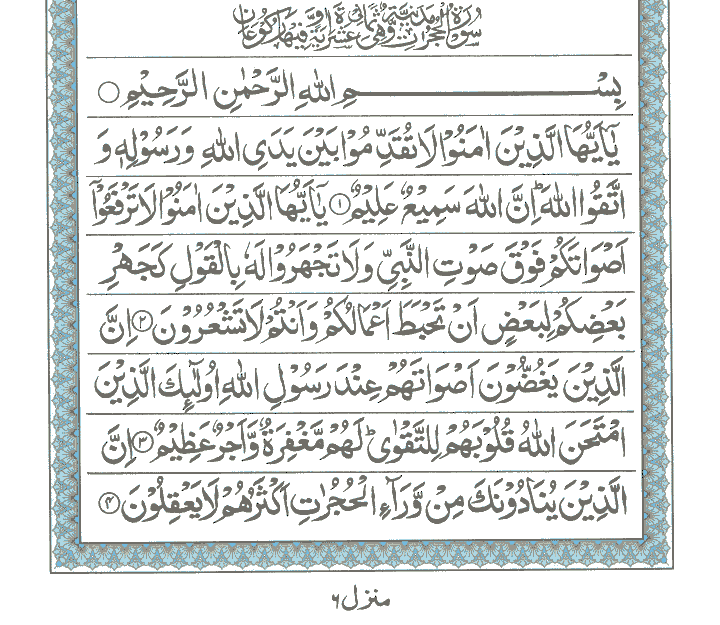 سُوْرَةُ الْحُجُرٰتِ مَدَنِيَّةٌ وَّهِيَ ثَمَانِيَ عَشْرَةَ اٰيَةً وَّفِيْهَا رُكُوْعَانِ
بِسْمِ اللّٰهِ الرَّحْمٰنِ الرَّحِيْمِ ○
يٰٓاَيُّهَا الَّذِيْنَ اٰمَنُوْا لَا تُقَدِّمُوْا بَيْنَ يَدَيِ اللّٰهِ وَرَسُوْلِهٖ وَ
اتَّقُوا اللّٰهَ ؕ اِنَّ اللّٰهَ سَمِيْعٌ عَلِيْمٌ ۝۱ يٰٓاَيُّهَا الَّذِيْنَ اٰمَنُوْا لَا تَرْفَعُوْۤا
اَصْوَاتَكُمْ فَوْقَ صَوْتِ النَّبِيِّ وَلَا تَجْهَرُوْا لَهٗ بِالْقَوْلِ كَجَهْرِ
بَعْضِكُمْ لِبَعْضٍ اَنْ تَحْبَطَ اَعْمَالُكُمْ وَاَنْتُمْ لَا تَشْعُرُوْنَ ۝۲ اِنَّ
الَّذِيْنَ يَغُضُّوْنَ اَصْوَاتَهُمْ عِنْدَ رَسُوْلِ اللّٰهِ اُولٰٓئِكَ الَّذِيْنَ
امْتَحَنَ اللّٰهُ قُلُوْبَهُمْ لِلتَّقْوٰى ؕ لَهُمْ مَّغْفِرَةٌ وَّاَجْرٌ عَظِيْمٌ ۝۳ اِنَّ
الَّذِيْنَ يُنَادُوْنَكَ مِنْ وَّرَآءِ الْحُجُرٰتِ اَكْثَرُهُمْ لَا يَعْقِلُوْنَ ۝۴
منزل ۶